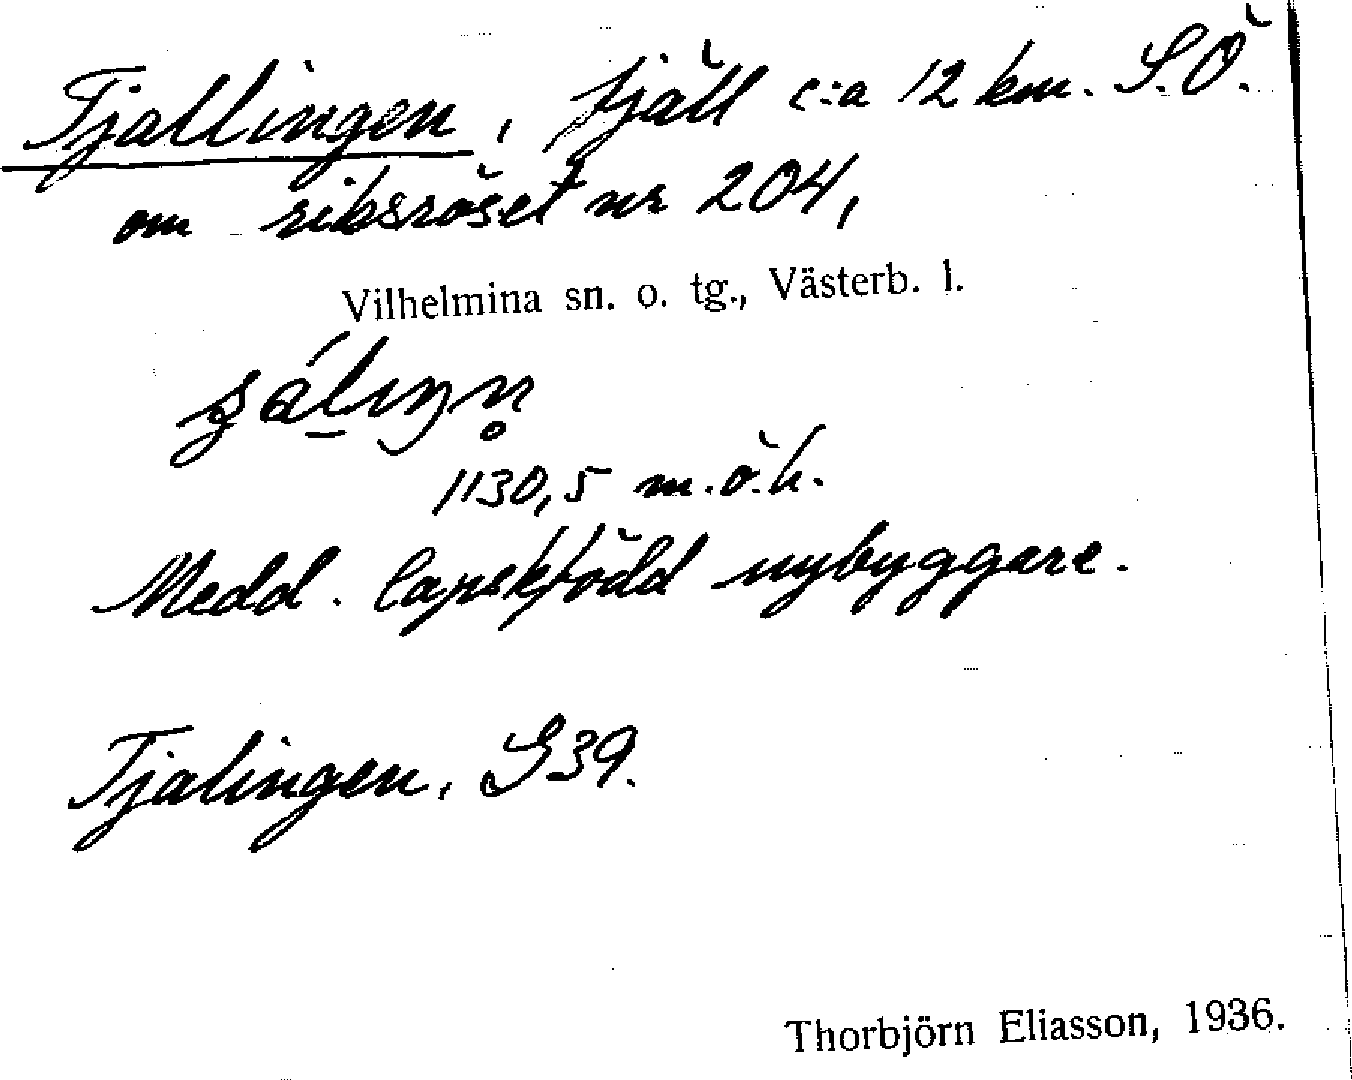 Tjallingen, fjäll c:a 12 km. S.Ö.
om riksröset nr 204,
Vilhelmina sn. o. tg., Västerb. l.
1130,5 m.ö.h.
Medd. lapskfödd nybyggare.
Tjalingen, G39.
Thorbjörn Eliasson, 1936.